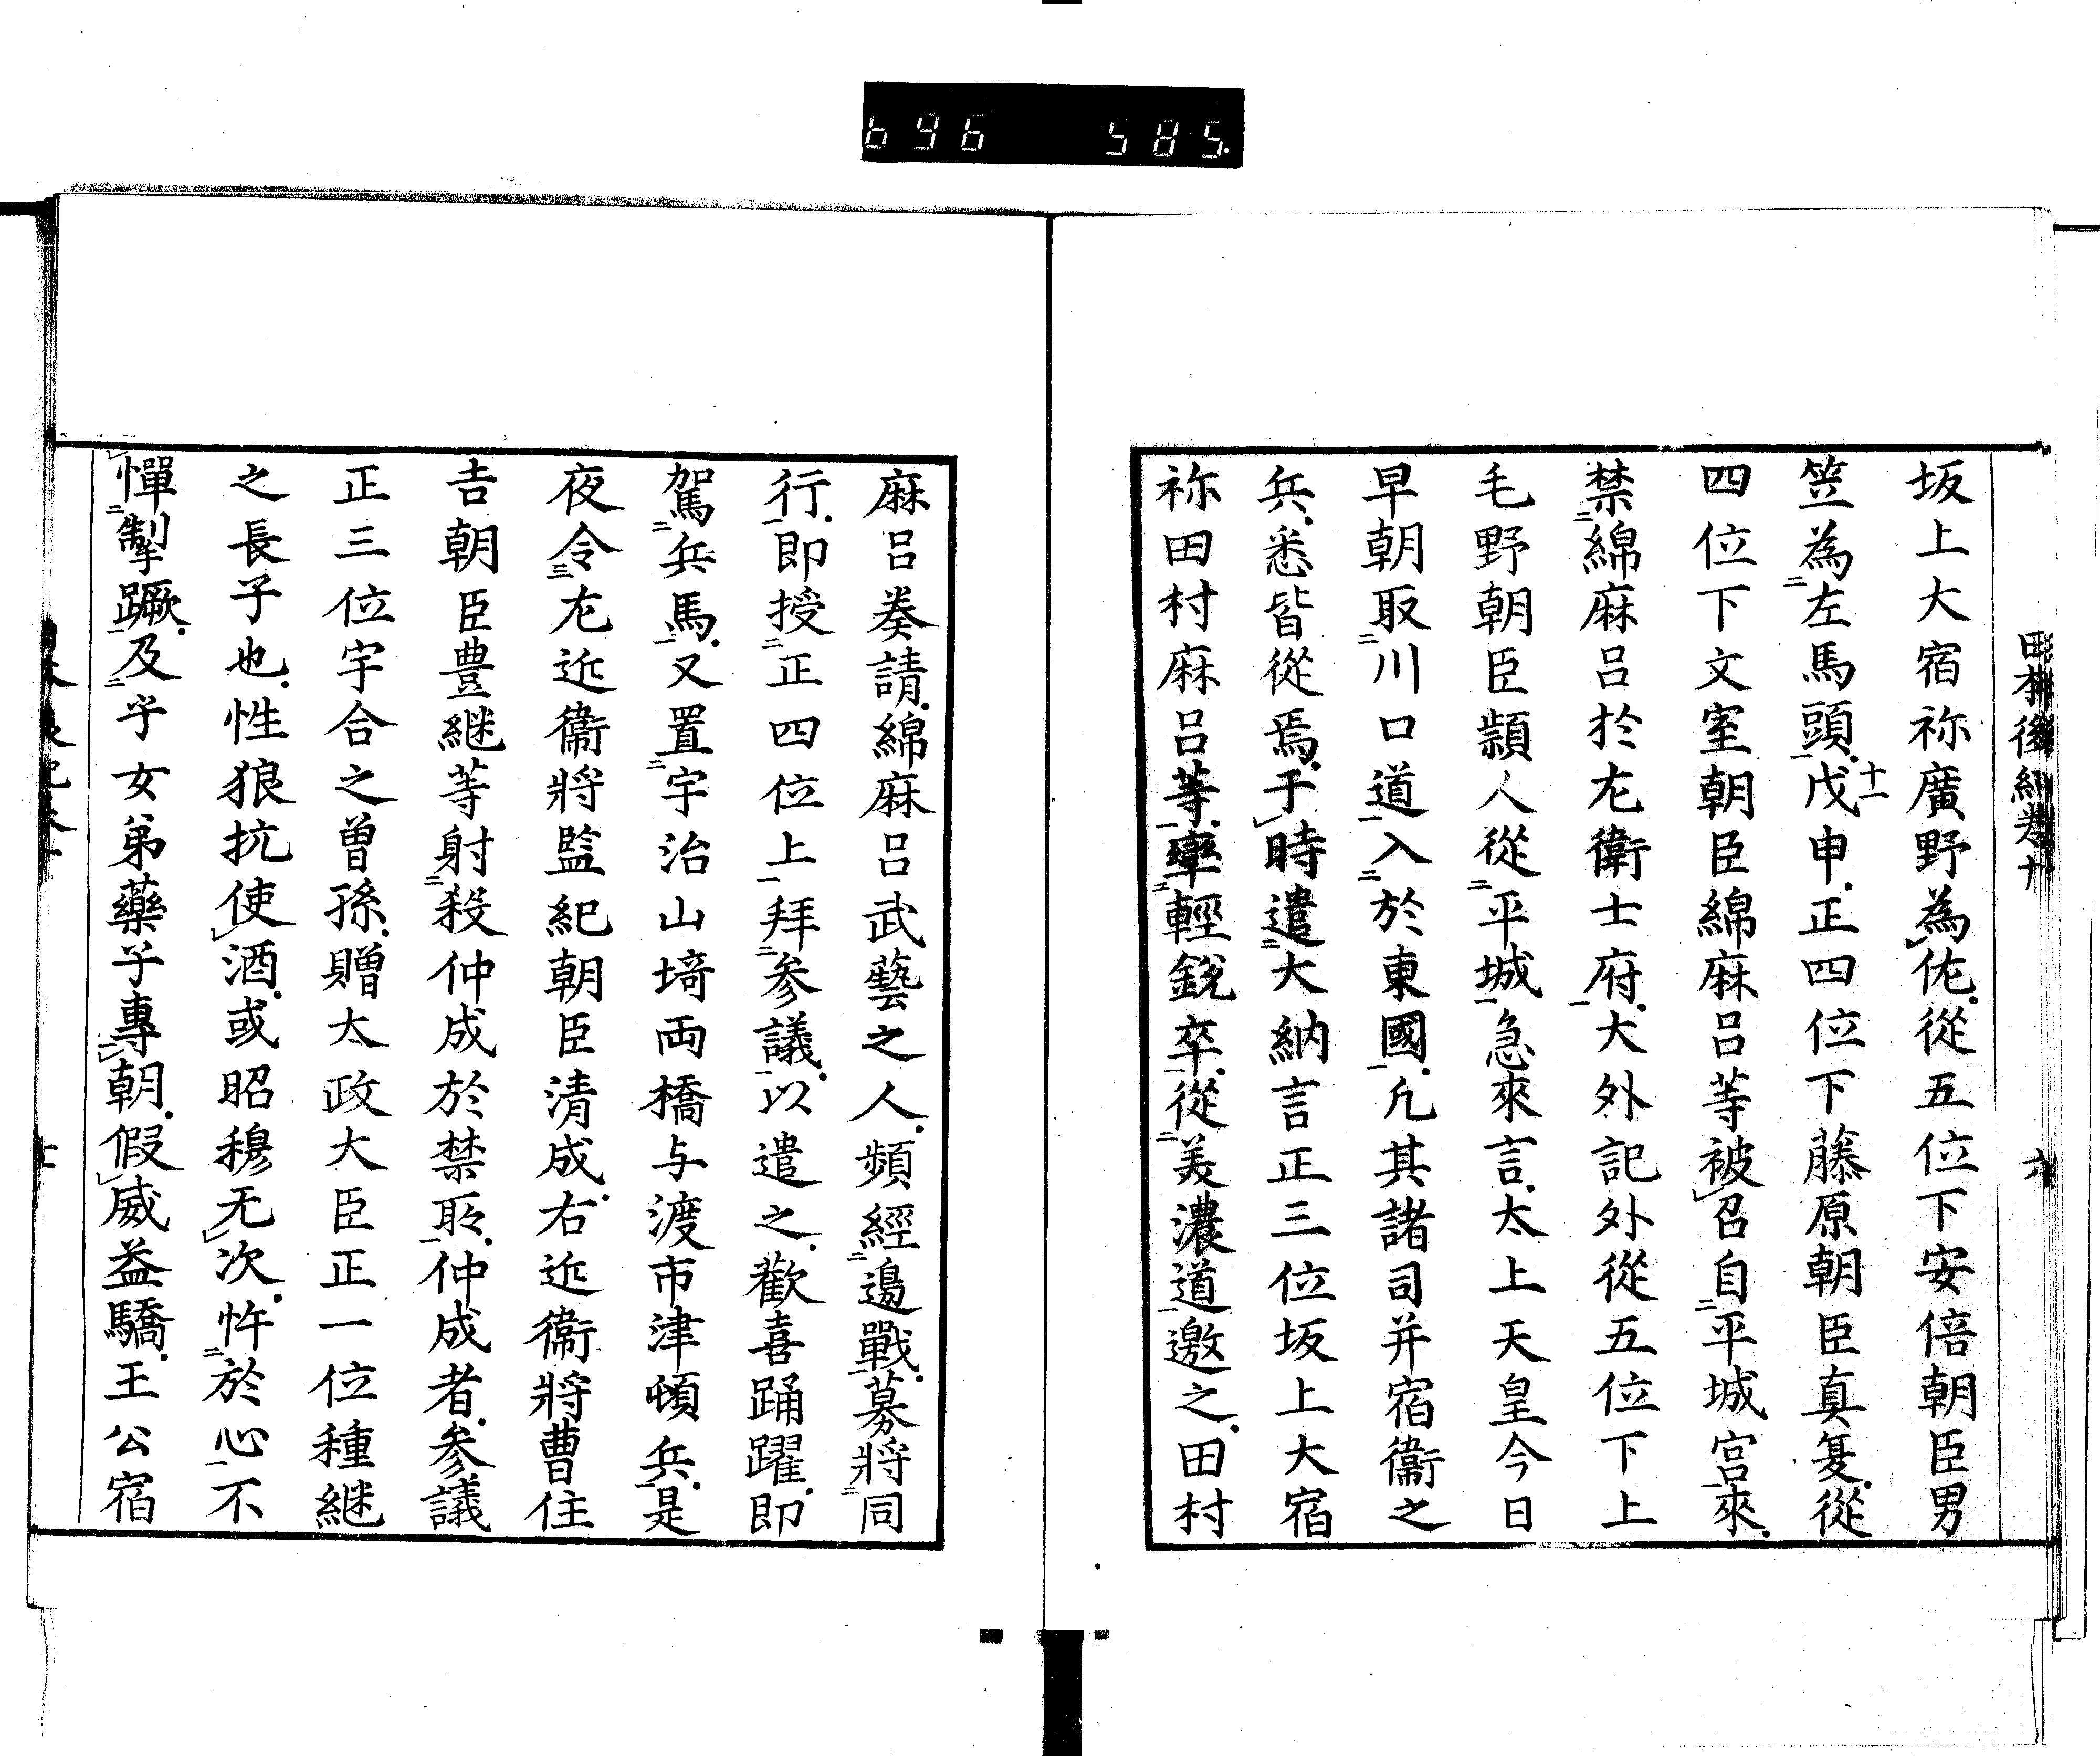 696 585
坂上大宿祢廣野為佐從五位下安倍朝臣男
笠為左馬頭戊申正四位下藤原朝臣真夏從
十一
四位下文室朝臣綿麻呂等被召自平城宮來
禁綿麻呂於左衛士府大外記外從五位下上
毛野朝臣頴人從平城急來言太上天皇今日
早朝取川口道入於東國凢其諸司并宿衞之
兵悉皆從焉于時遣大納言正三位坂上大宿
祢田村麻呂等率輕銳卒從美濃道邀之田村
麻呂奏請綿麻呂武藝之人頻經邊戰募將同
行即授正四位上拜参議以遣之歡喜踊躍即
駕兵馬又置宇治山埼両橋与渡市津頓兵是
夜令左近衞將監紀朝臣清成右近衞將曹住
吉朝臣豊継等射殺仲成於禁所仲成者参議
正三位宇合之曽孫贈太政大臣正一位種継
之長子也性狼抗使酒或昭穆无次忤於心不
憚掣蹶及乎女弟藥子專朝假威益驕王公宿